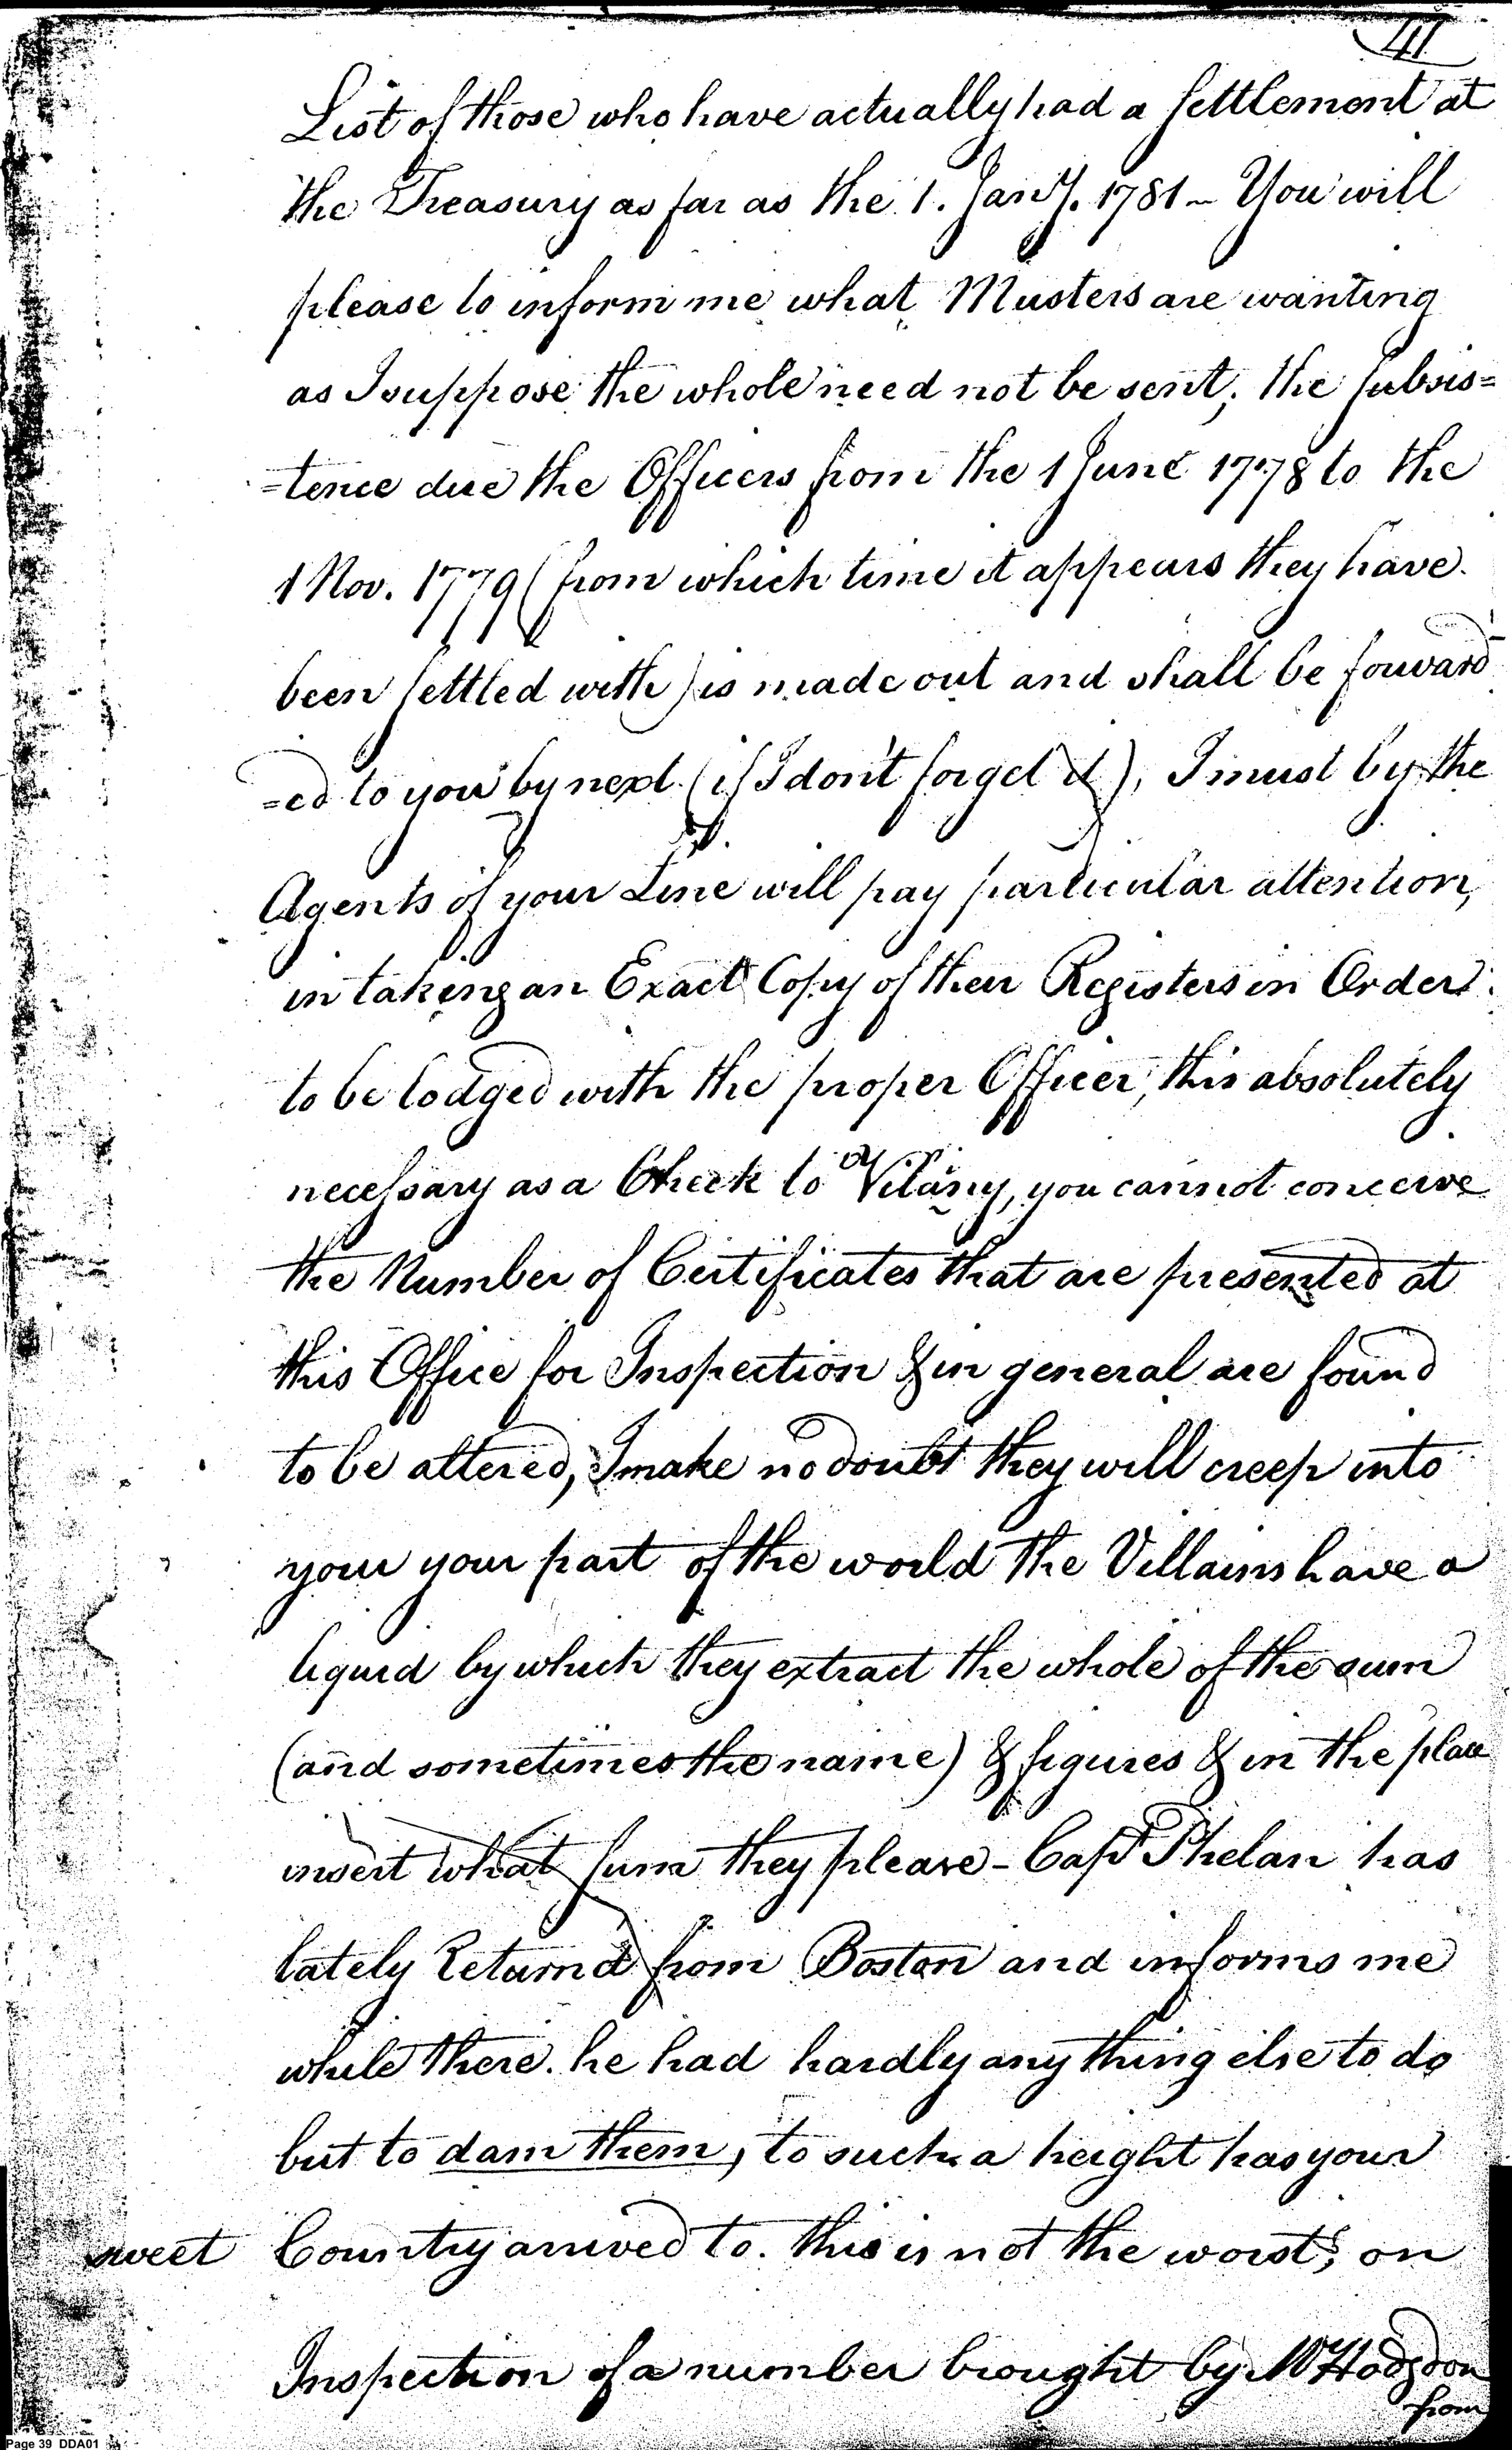 111
List of those who have actually had a Settlement at
the Treasury as far as the 1. Jany. 1781 - You will
please to inform me what Musters are wanting
as I suppose the whole need not be sent; the Subsis=
=tence due the Officers from the 1 June 1778 to the
1 Nov. 1779 (from which time it appears they have
been settled with) is made out and shall be forward
=ed to you by next (if I dont forget it), I must beg the
Agents of your Line will pay particular attention,
in taking an Exact Copy of their Registers in Order
to be lodged with the proper Officer, this absolutely
necessary as a Check to Vilany, you cannot conceive
the Number of Certificates that are presented at
this Office for Inspection & in general are found
to be altered, I make no doubt they will creep into
your your part of the world the Villains have a
liquid by which they extract the whole of the sum
(and sometimes the name) & figures & in the place
insert what sum they please - Capt Phelan has
lately Returnd from Boston and informs me
while there he had hardly any thing else to do
but to dam them, to such a height has your
sweet Country arrived to. this is not the worst, on
Inspection of a number brought by Mr Hodgdon
from
Page 39 DDA01